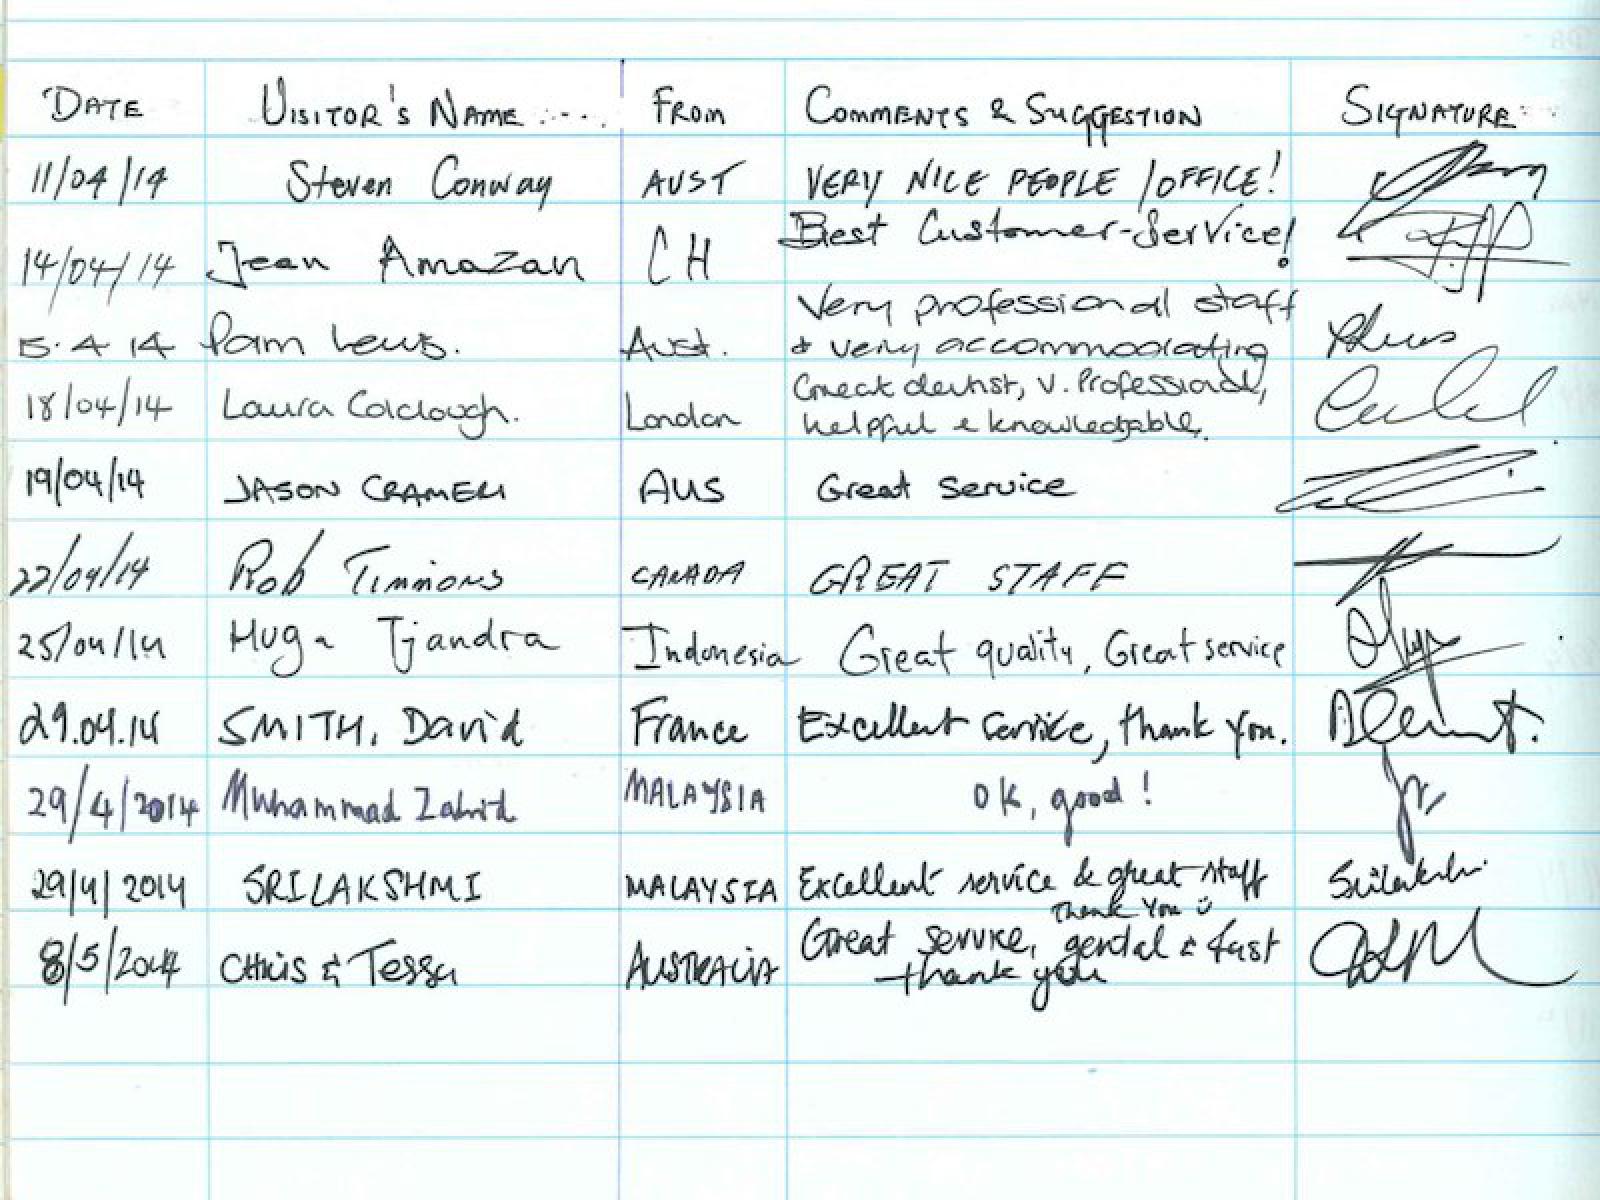 DATE VISITOR'S NAME .... FROM COMMENTS & SUGGESTION SIGNATURE
11/04/14 Steven Conway AUST VERY NICE PEOPLE / OFFICE!
14/04/14 Jean Amazan CH Best Customer-Service!
Very professional staff
15.4.14 Pam Lewis. Aust. & very accommodating
Great dentist, v. Professional,
18/04/14 Laura Colclough. London helpful & knowledgable.
19/04/14 JASON CRAMERI AUS Great service
22/04/14 Rob Timmons CANADA GREAT STAFF
25/04/14 Huga Tjandra Indonesia Great quality, Great service
29.04.14 SMITH, David France Excellent service, thank you.
29/4/2014 Muhammad Zahid MALAYSIA OK, good!
29/4/2014 SRILAKSHMI MALAYSIA Excellent service & great staff
Thank You
8/5/2014 Chris & Tessa AUSTRALIA Great service, gental & fast
thank you